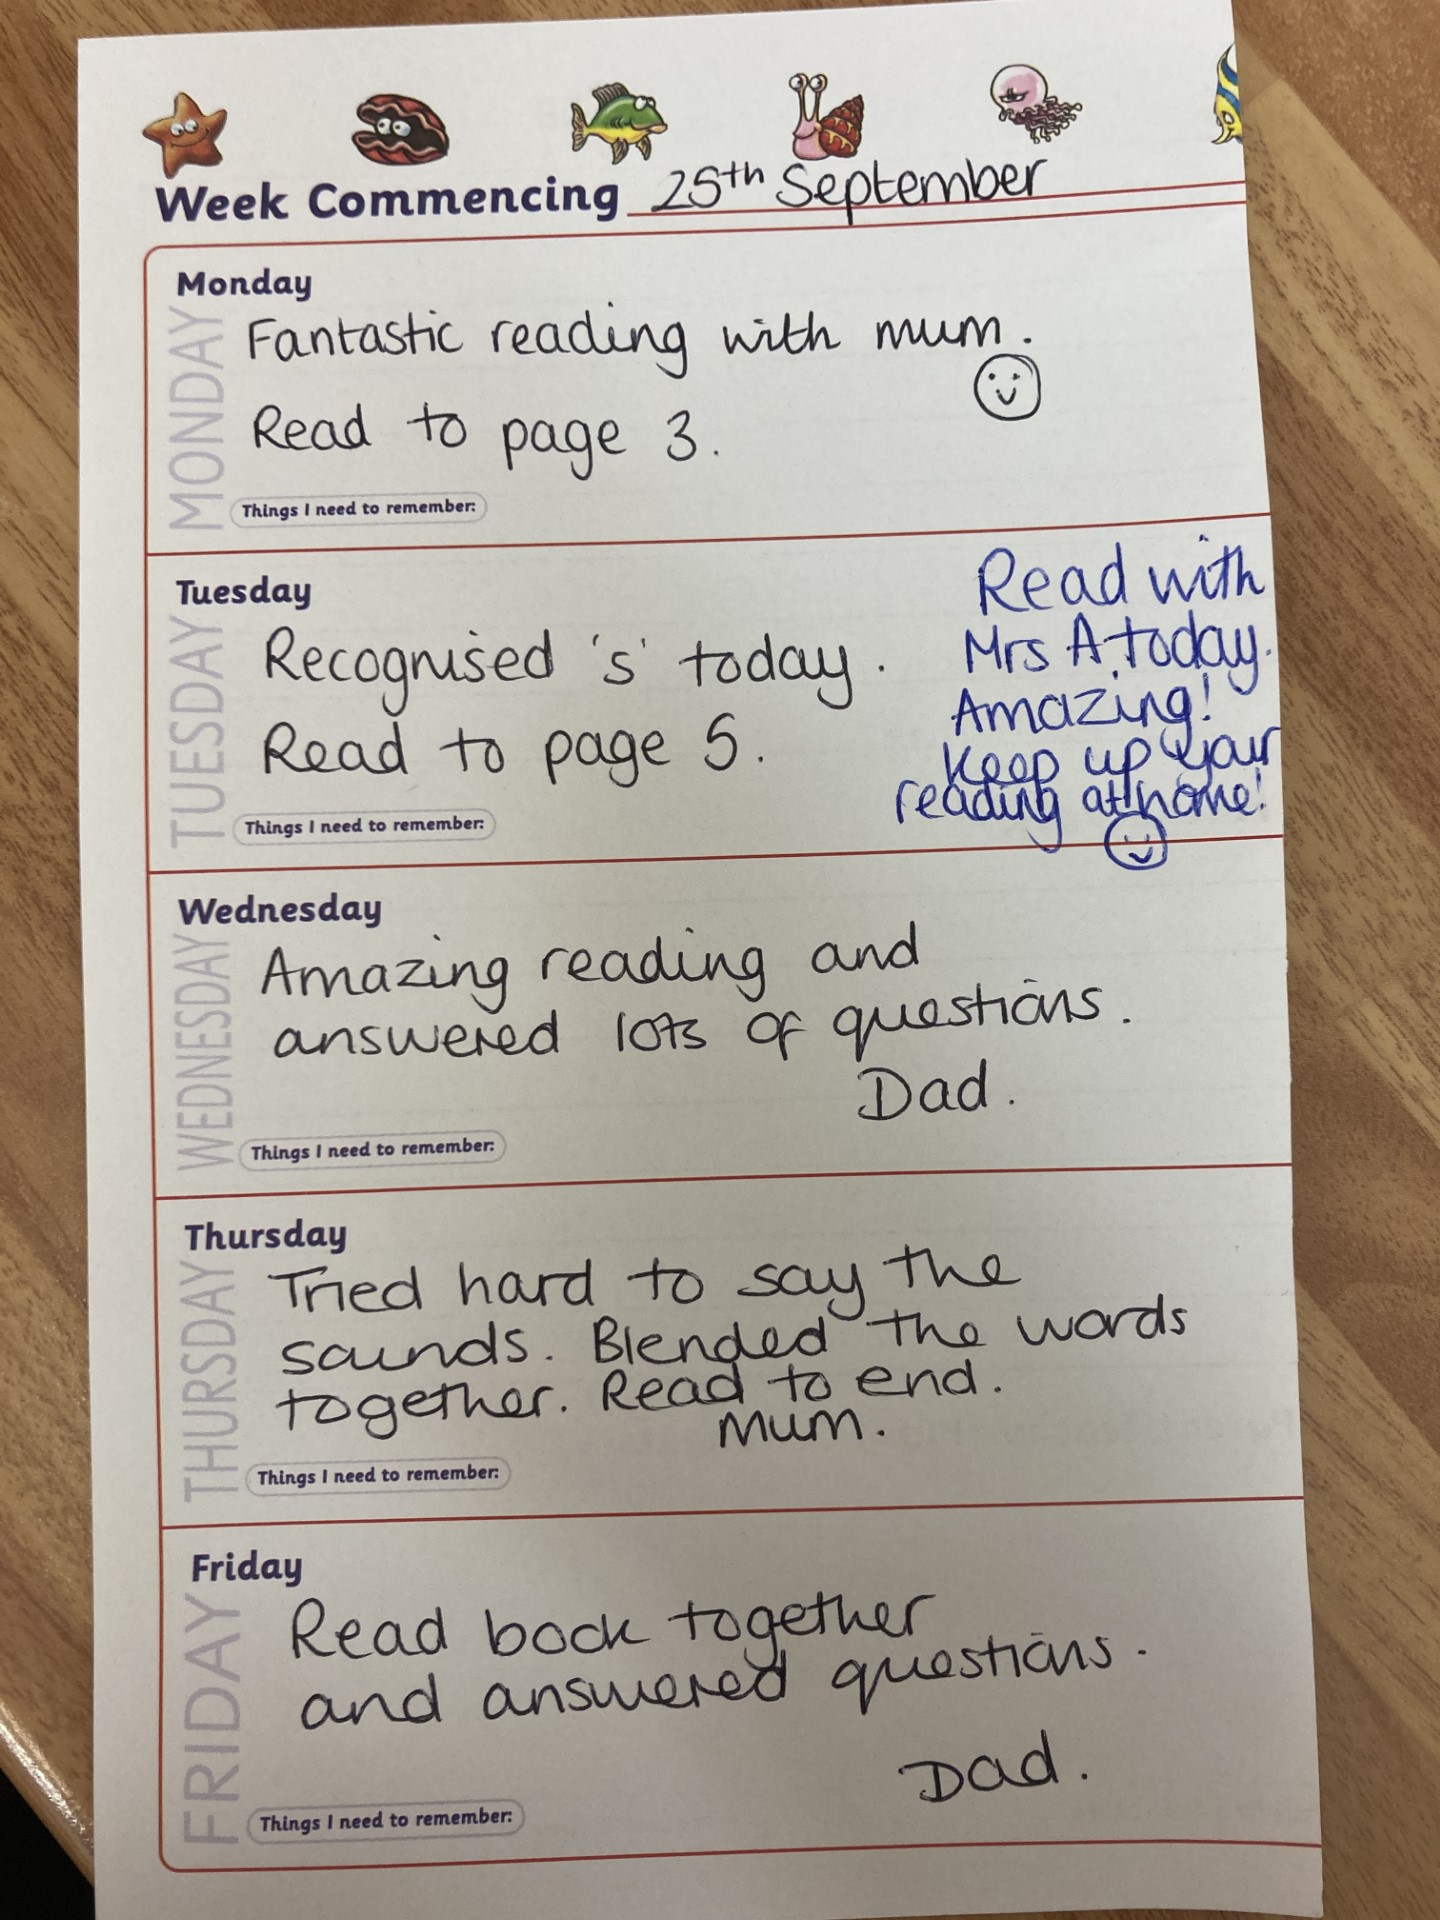 Week Commencing 25th September
Monday
MONDAY
Fantastic reading with mum.
Read to page 3.
Things I need to remember:
Tuesday
TUESDAY
Recognised 's' today.
Read to page 5.
Read with
Mrs A today.
Amazing!
Keep up your
reading at home!
Things I need to remember:
Wednesday
WEDNESDAY
Amazing reading and
answered lots of questions.
Dad.
Things I need to remember:
Thursday
THURSDAY
Tried hard to say the
sounds. Blended the words
together. Read to end.
Mum.
Things I need to remember:
Friday
FRIDAY
Read book together
and answered questions.
Dad.
Things I need to remember: